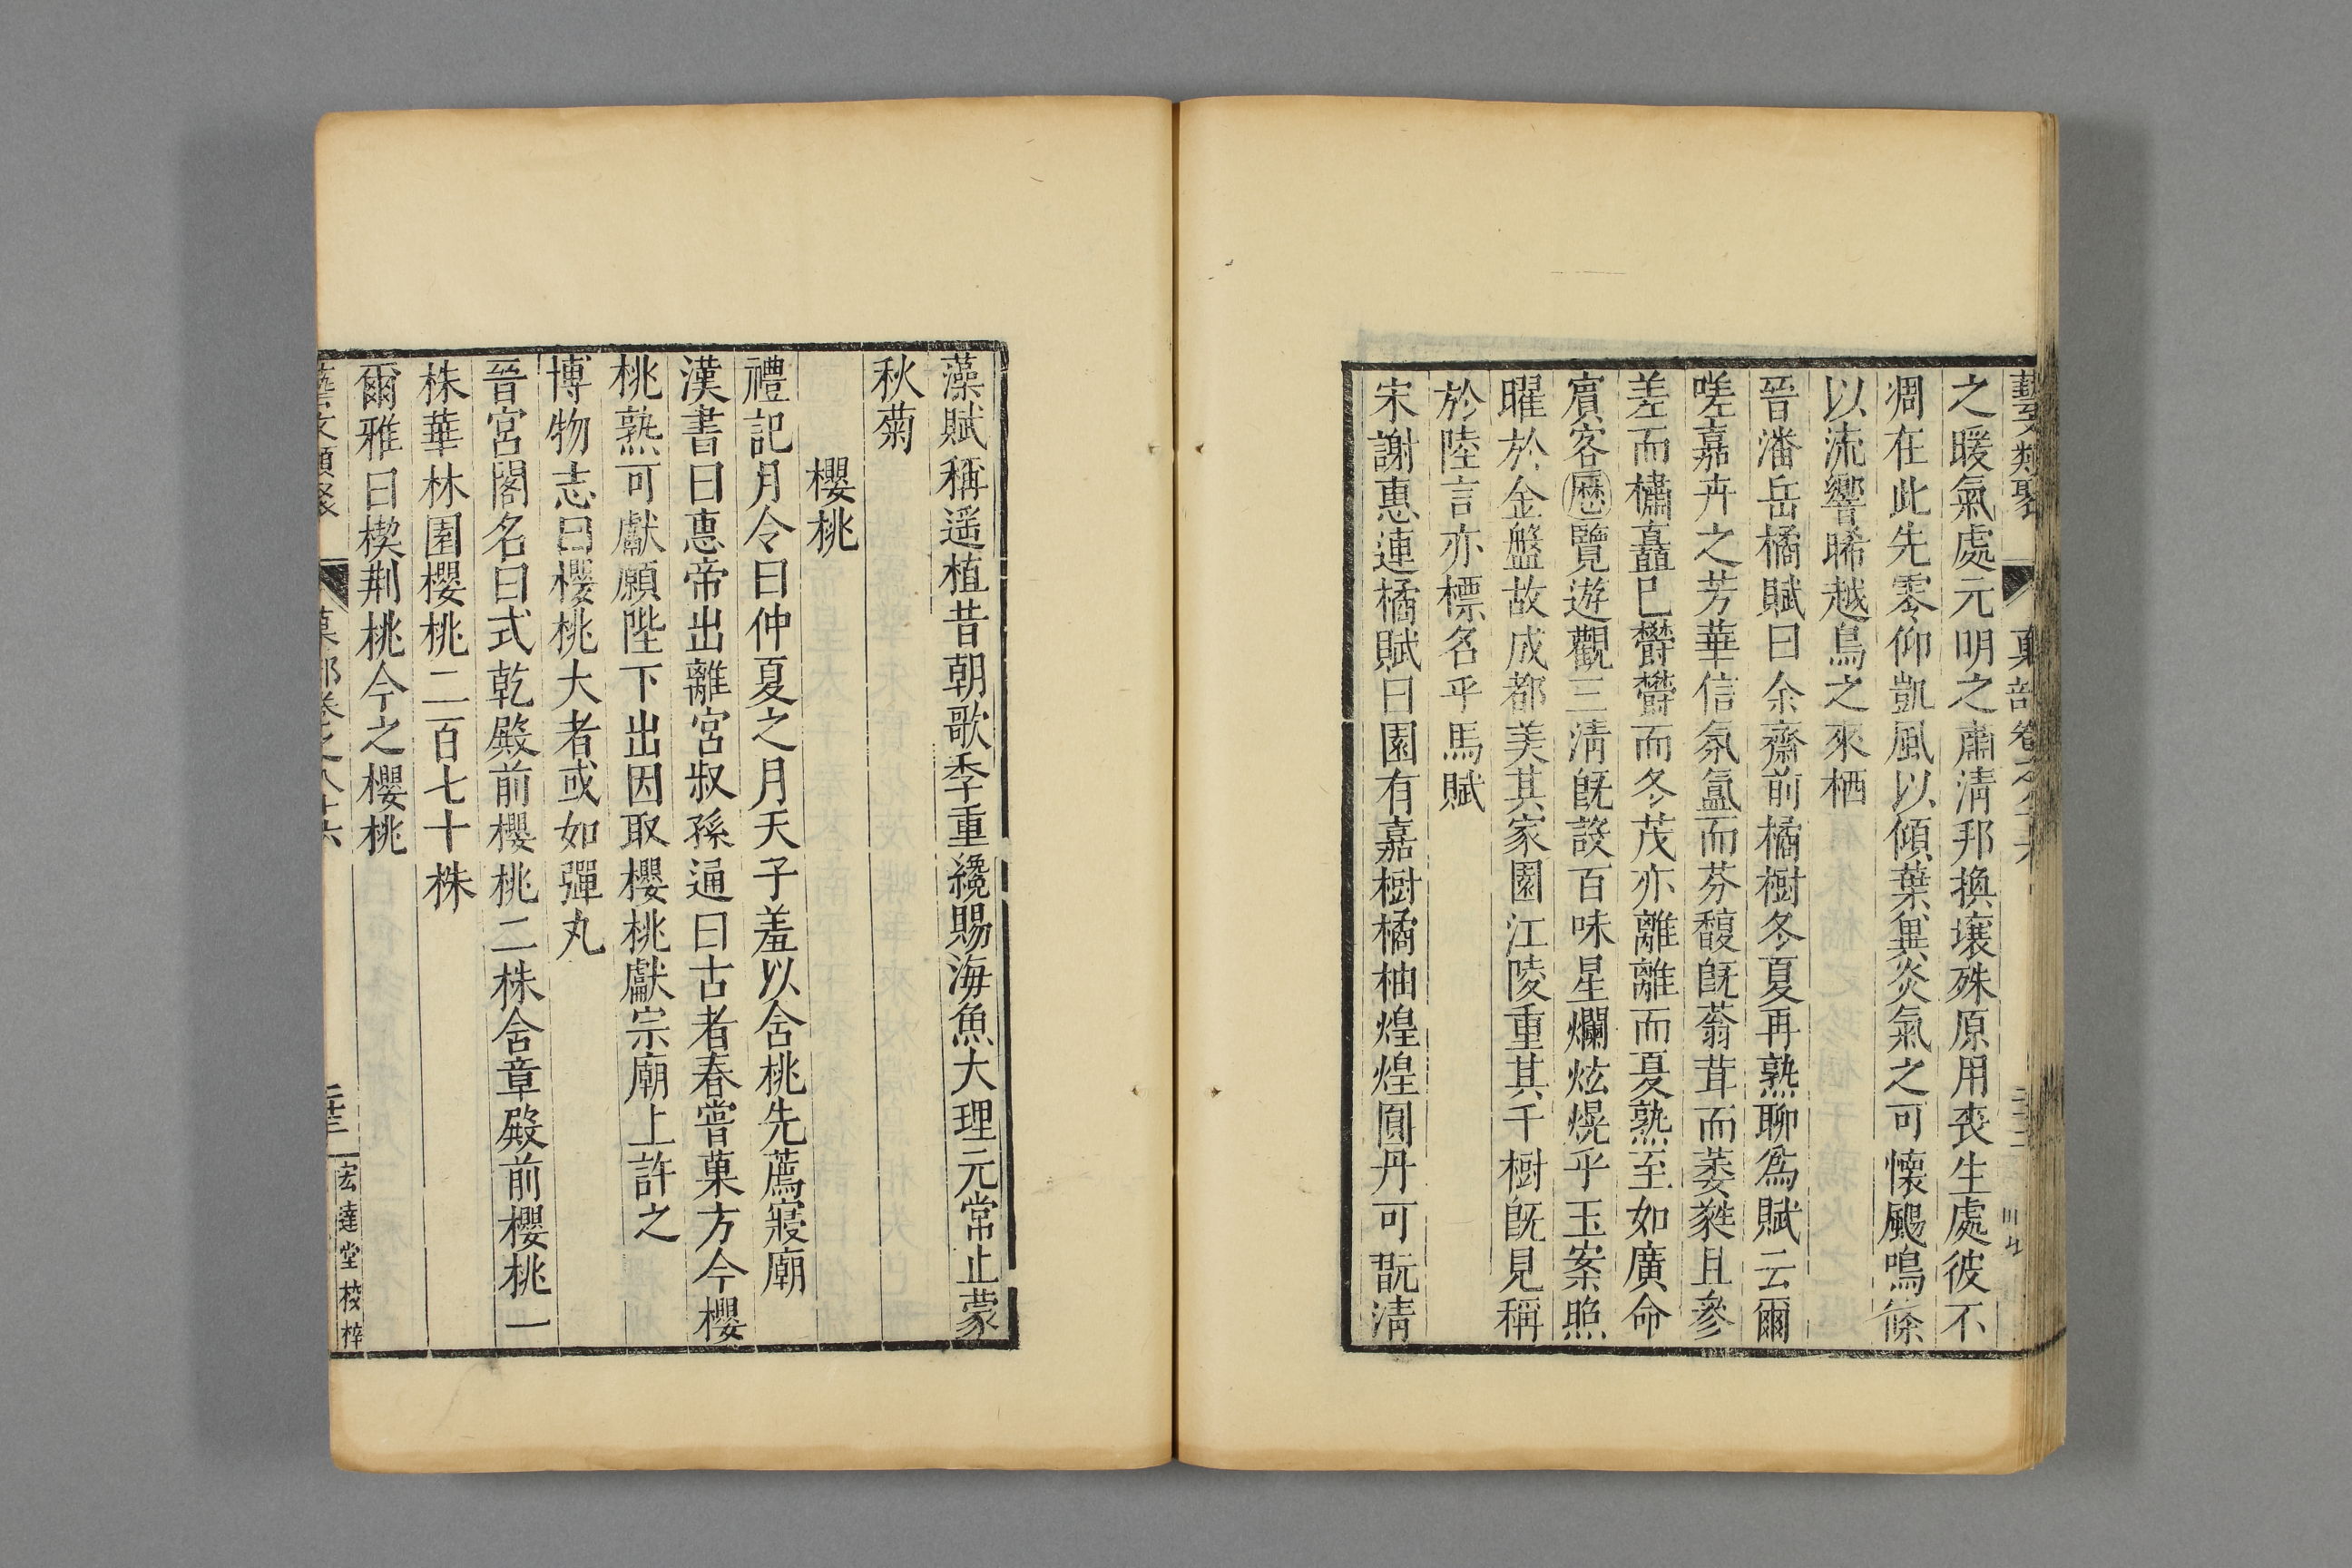 藝文類聚 菓部卷之八十六
之暖氣處元明之肅清邦換壤殊原用喪生處彼不
凋在此先零仰凱風以傾葉異炎氣之可懷颺鳴條
以流響晞越鳥之來栖
晉潘岳橘賦曰余齋前橘樹冬夏再熟聊爲賦云爾
嗟嘉卉之芳華信氛氳而芬馥旣蓊茸而萎蕤且參
差而橚矗巳鬱鬱而冬茂亦離離而夏熟至如廣命
賓客歷覽遊觀三清旣設百味星爛炫熀乎玉案照
曜於金盤故成都美其家園江陵重其千樹旣見稱
於陸言亦標名乎馬賦
宋謝惠連橘賦曰園有嘉樹橘柚煌煌圓丹可翫清
藻賦稱遥植昔朝歌季重纔賜海魚大理元常止蒙
秋菊
櫻桃
禮記月令曰仲夏之月天子羞以含桃先薦寢廟
漢書曰惠帝出離宮叔孫通曰古者春嘗菓方今櫻
桃熟可獻願陛下出因取櫻桃獻宗廟上許之
博物志曰櫻桃大者或如彈丸
晉宮閣名曰式乾殿前櫻桃二株含章殿前櫻桃一
株華林園櫻桃二百七十株
爾雅曰楔荆桃今之櫻桃
藝文類聚 菓部卷之八十六 二十三 宏達堂校梓